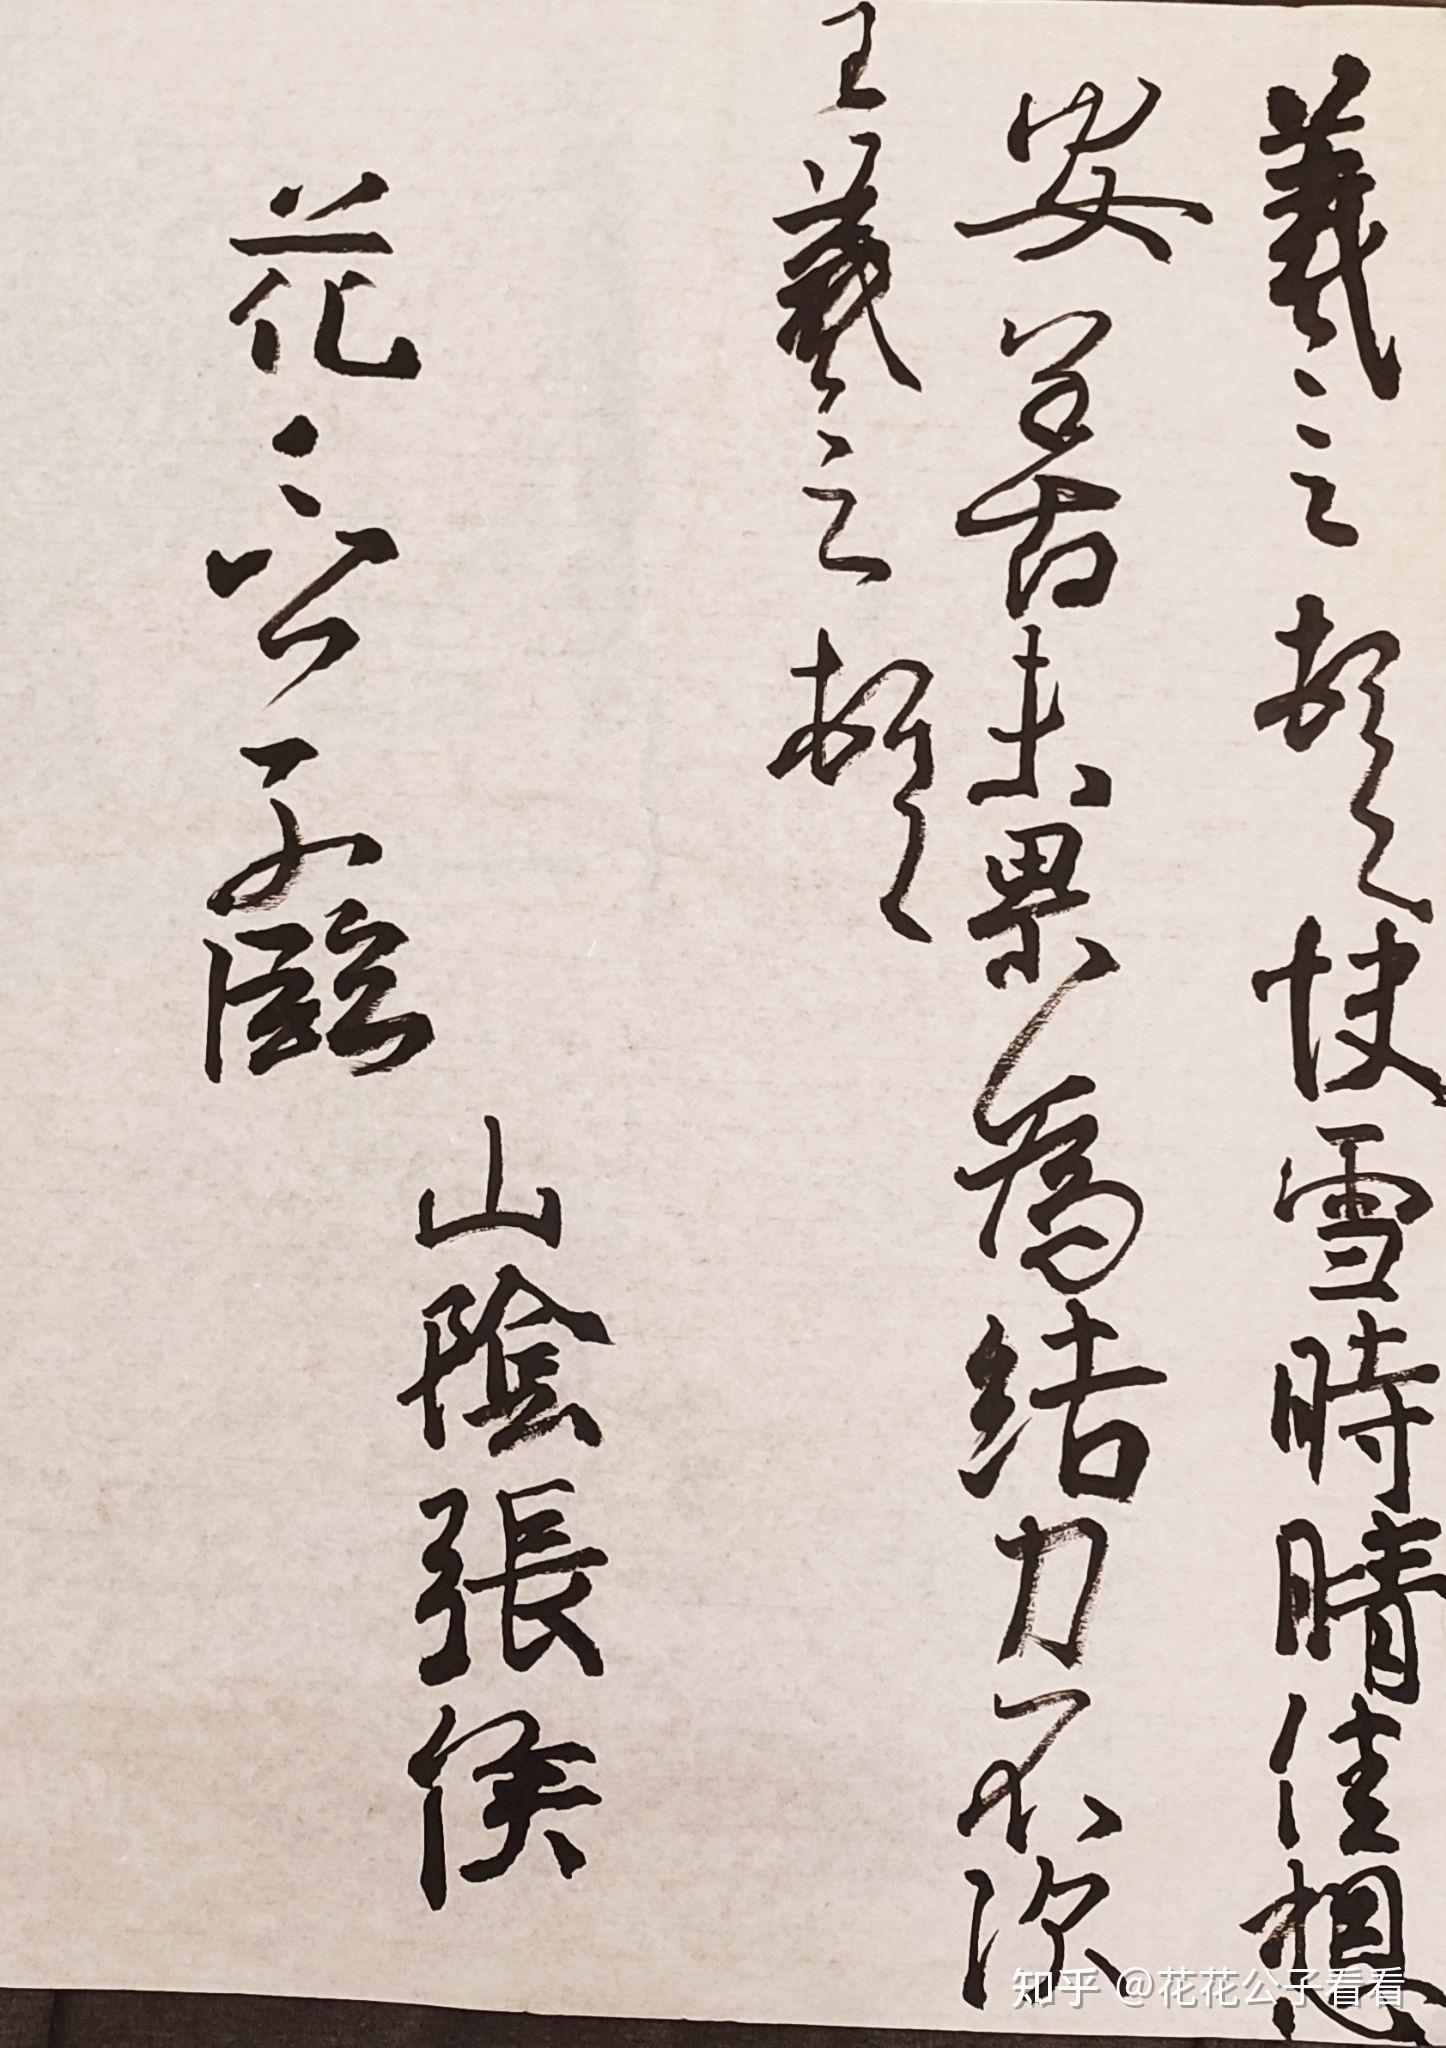 羲之頓首快雪時晴佳想
安善古未果為結力不次
王羲之頓首
山陰張侯
花花公子臨
知乎 @花花公子看看